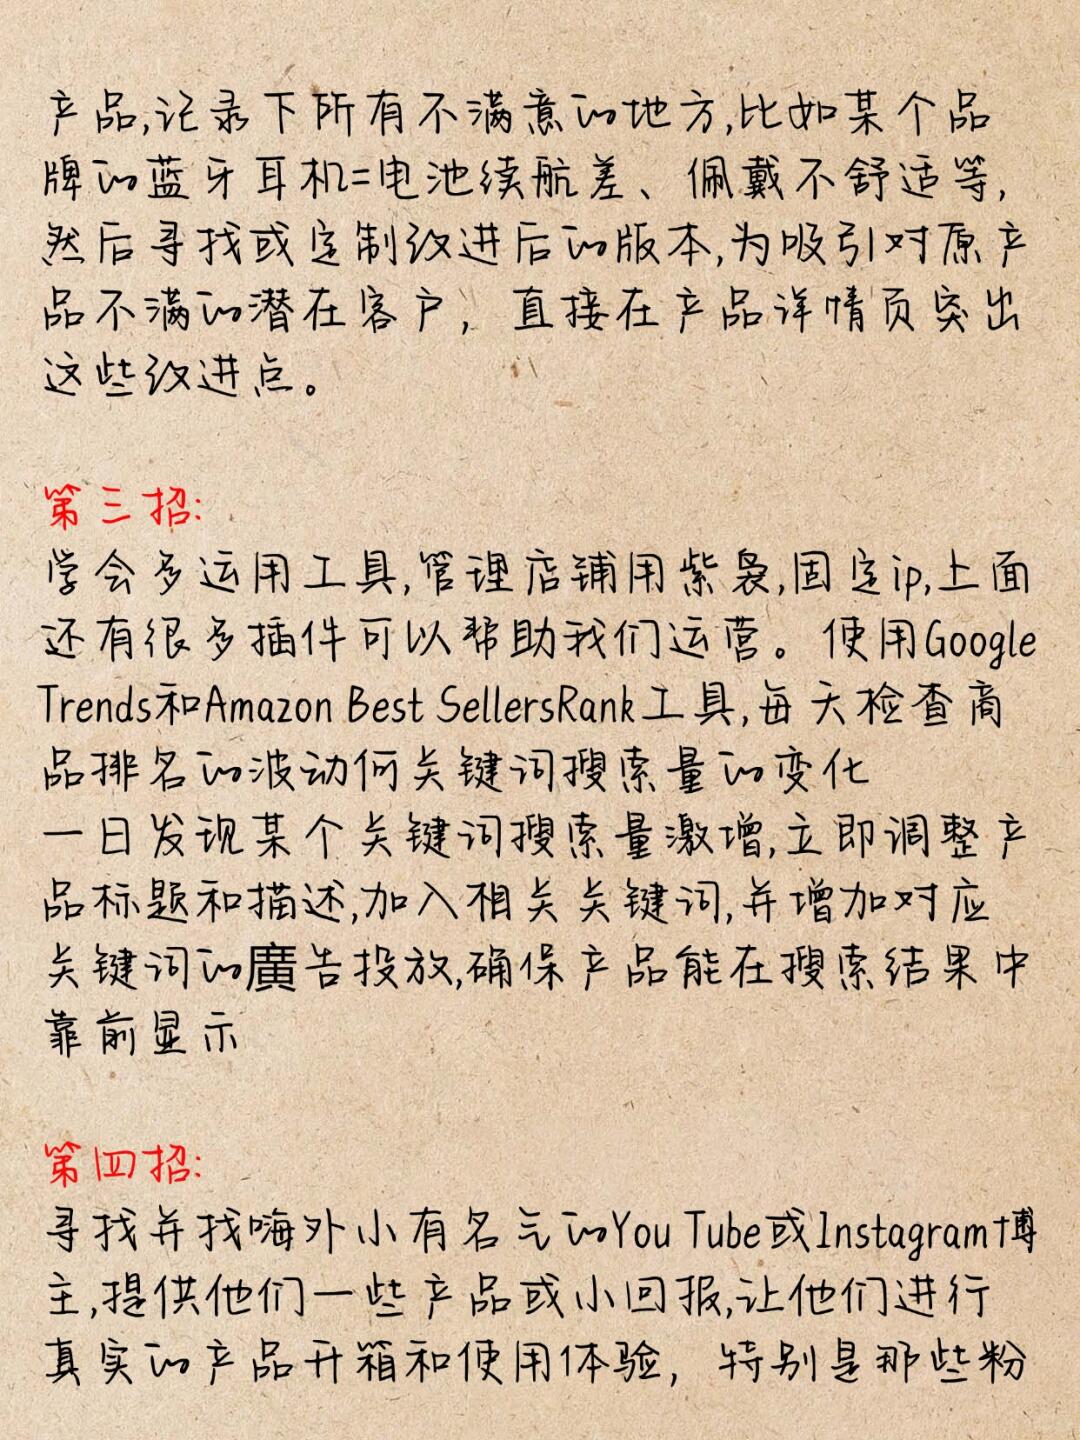 产品,记录下所有不满意的地方,比如某个品
牌的蓝牙耳机=电池续航差、佩戴不舒适等,
然后寻找或定制改进后的版本,为吸引对原产
品不满的潜在客户，直接在产品详情页突出
这些改进点。
第三招:
学会多运用工具,管理店铺用紫袅,固定ip,上面
还有很多插件可以帮助我们运营。使用Google
Trends和Amazon Best SellersRank工具,每天检查商
品排名的波动何关键词搜索量的变化
一日发现某个关键词搜索量激增,立即调整产
品标题和描述,加入相关关键词,并增加对应
关键词的廣告投放,确保产品能在搜索结果中
靠前显示
第四招:
寻找并找嗨外小有名气的You Tube或Instagram博
主,提供他们一些产品或小回报,让他们进行
真实的产品开箱和使用体验，特别是那些粉